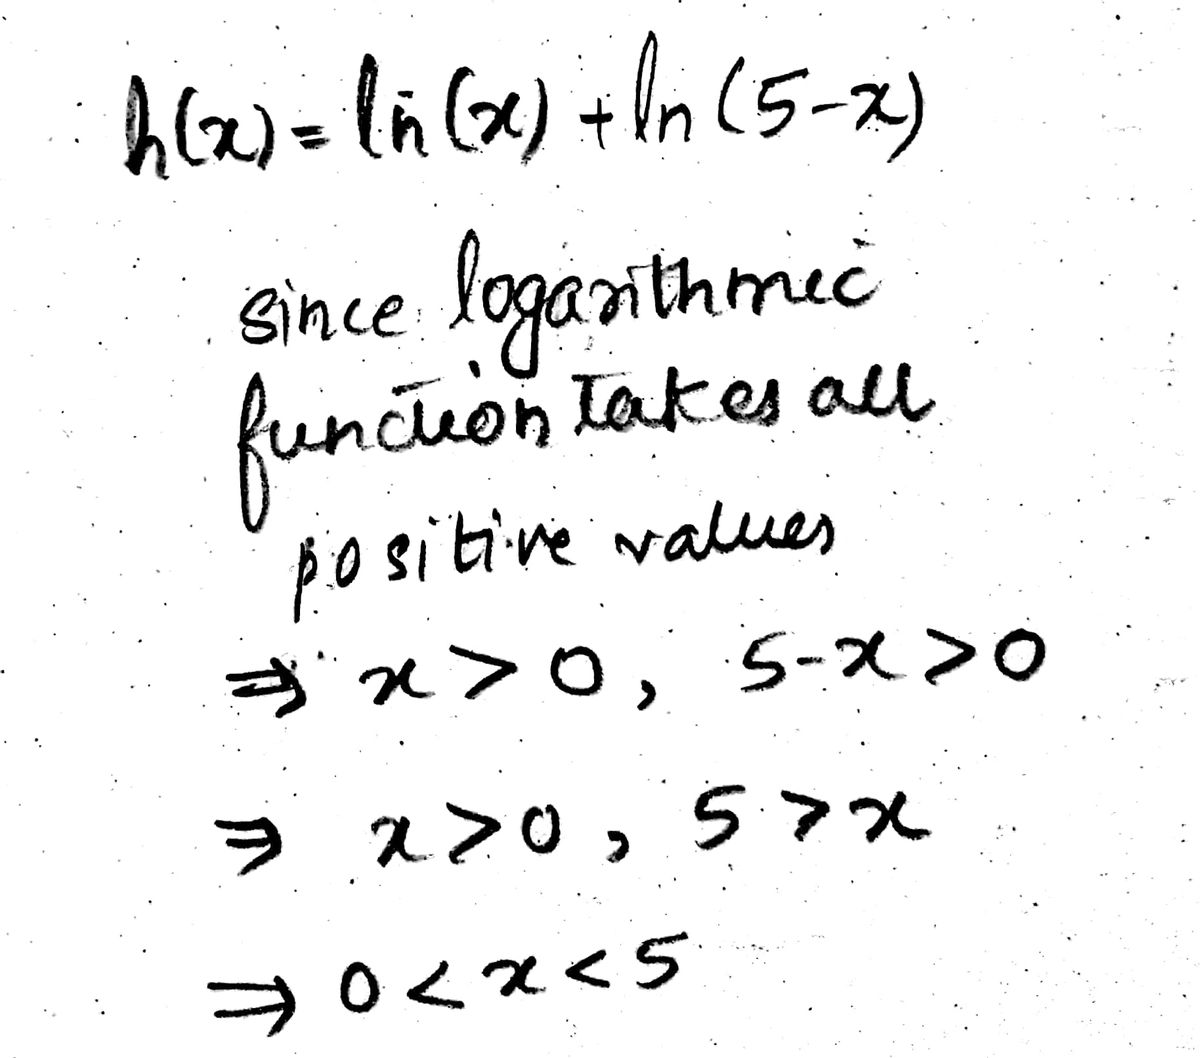 h(x) = ln(x) + ln(5-x)
since logarithmic
function takes all
positive values
⇒ x > 0, 5-x > 0
⇒ x > 0, 5 > x
⇒ 0 < x < 5